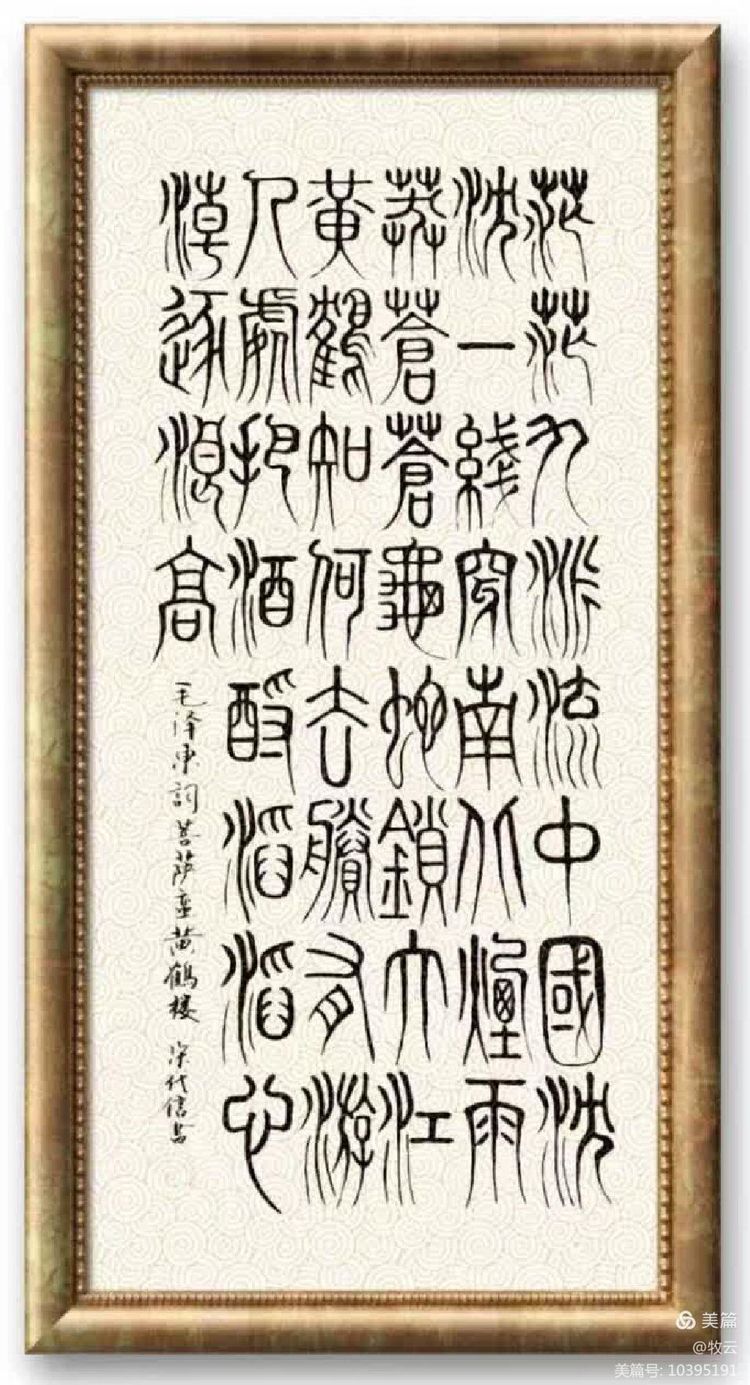 茫茫九派流中國沈
沈一綫穿南北煙雨
莽蒼蒼龜蛇鎖大江
黃鶴知何去賸有游
人處把酒酹滔滔心
潮逐浪高
毛泽东詞菩萨蛮黄鶴楼 代信书
美篇
@牧云
美篇号: 10395191